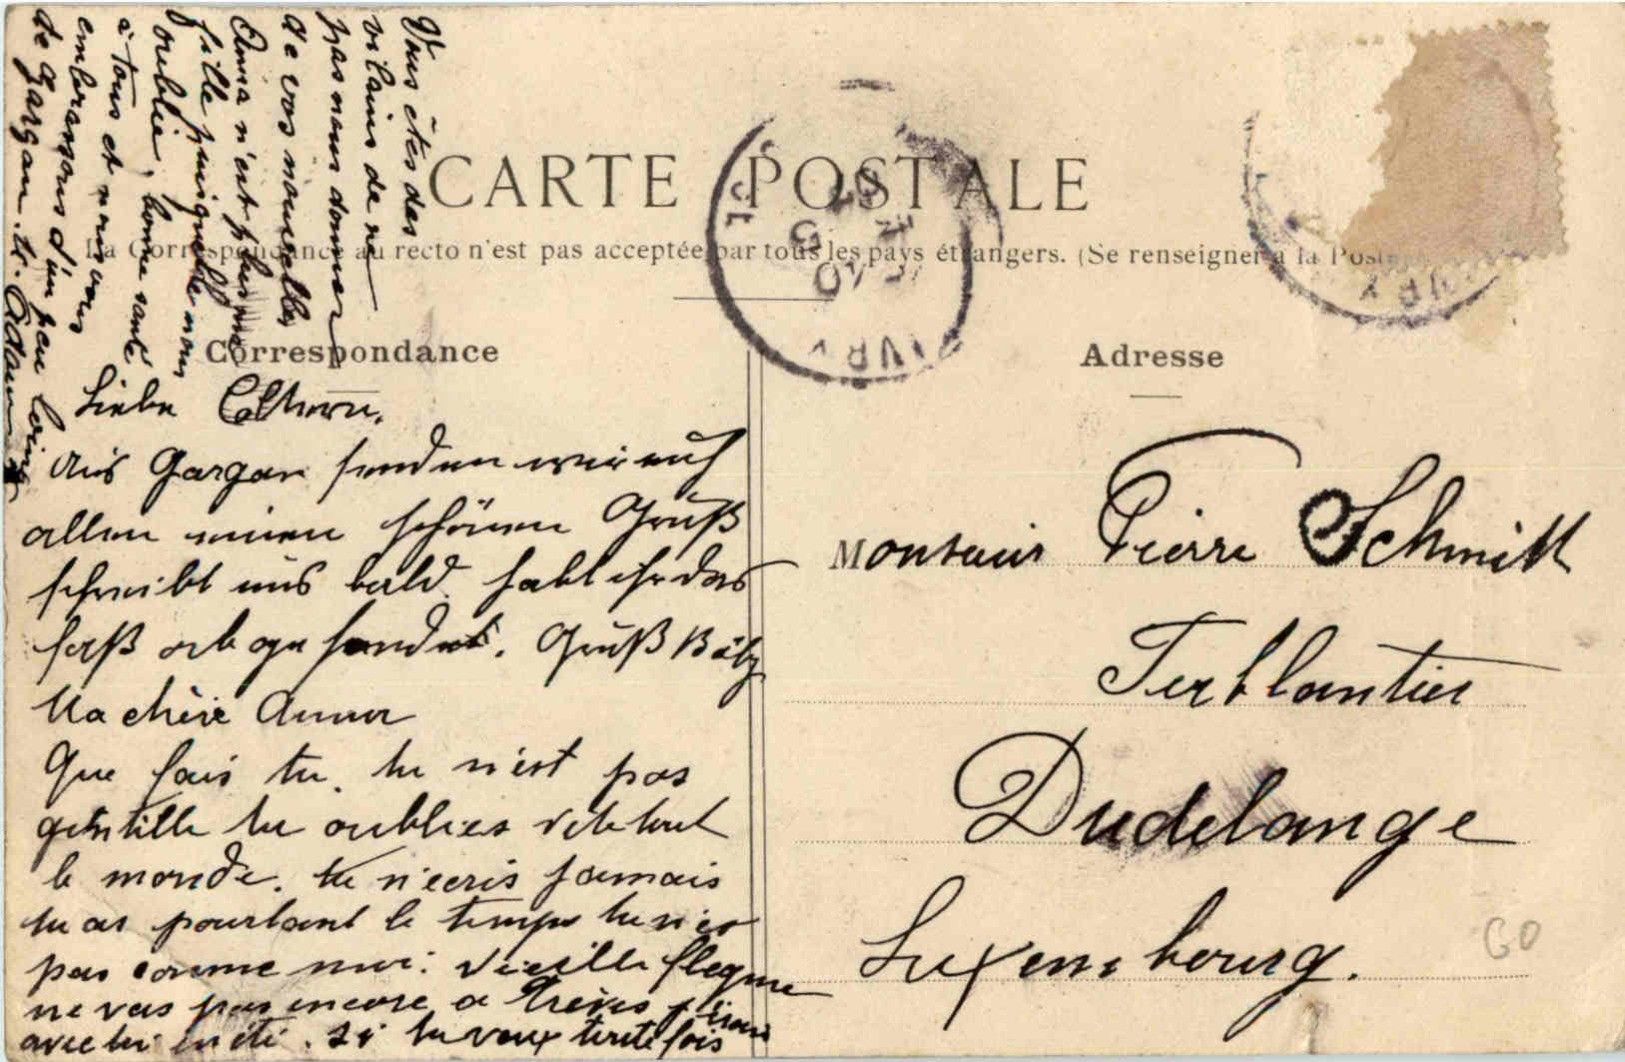 CARTE POSTALE
La Correspondance au recto n'est pas acceptée par tous les pays étrangers. (Se renseigner à la Poste
Correspondance
Adresse
Vous êtes des
vilains de ne
pas nous donner
de vos nouvelles
Anna n'est plus
fille puisqu'elle nous
oublie, bonne santé
à tous et nous vous
embrassons d'un peu loin
de Gargan. tr. Adam
Liebe Eltern.
Aus Gargan senden wir euch
allen einen schönen Gruß
schreibt uns bald. habt ihr das
faß abgesendet. Gruß
Ma chère Anna
Que fais tu. tu n'est pas
gentille tu oublies tout
le monde. tu n'ecris jamais
tu as pourtant le temps tu n'es
pas comme moi. Vieille flegme
ne vas pas encore a Trèves j'irais
avec toi en été. si tu veux toutefois
Monsieur Pierre Schmitt
Ferblantier
Dudelange
Luxembourg.
GO